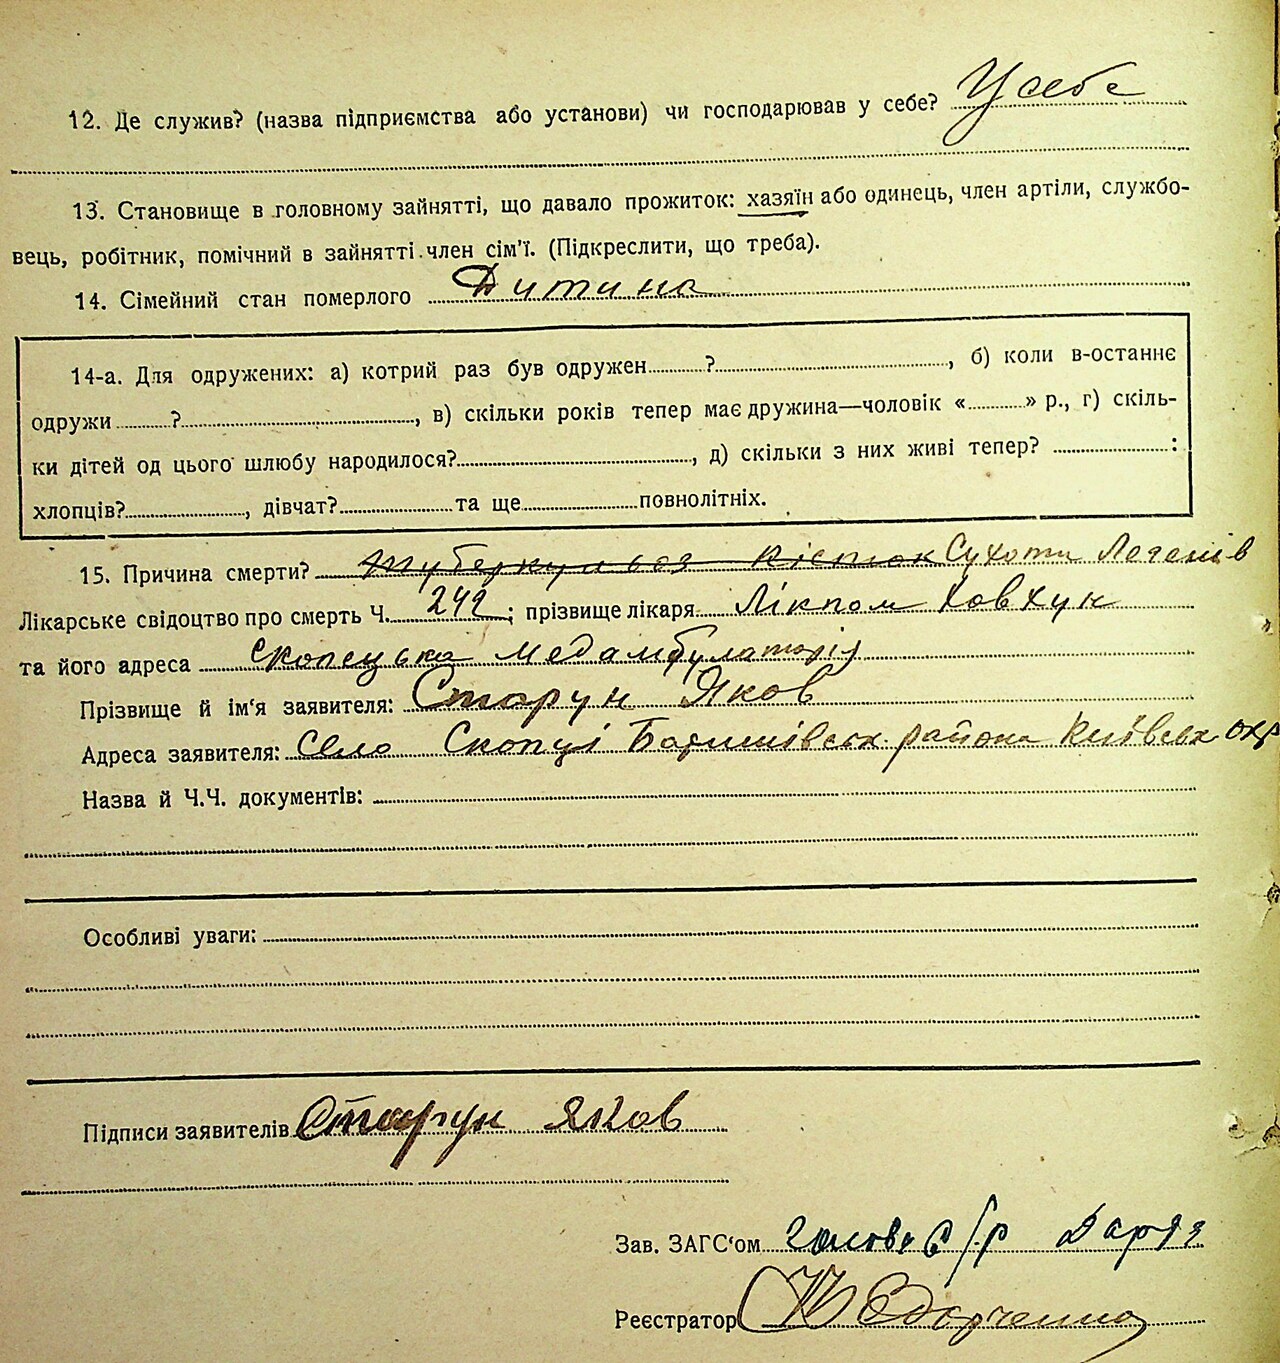 12. Де служив? (назва підприємства або установи) чи господарював у себе? У себе
13. Становище в головному зайнятті, що давало прожиток: хазяїн або одинець, член артіли, службо-
вець, робітник, помічний в зайнятті член сім'ї. (Підкреслити, що треба).
14. Сімейний стан померлого Дитина
14-а. Для одружених: а) котрий раз був одружен ? , б) коли в-останнє
одружи ? , в) скільки років тепер має дружина—чоловік « » р., г) скіль-
ки дітей од цього шлюбу народилося? , д) скільки з них живі тепер? :
хлопців? , дівчат? та ще повнолітніх.
15. Причина смерти? Туберкульоз кісток Сухоти Легенів
Лікарське свідоцтво про смерть Ч. 242 ; прізвище лікаря Лікпом Ховхун
та його адреса Скопецька медамбулаторія
Прізвище й ім'я заявителя: Старун Яков
Адреса заявителя: Село Скопці Баришівськ. района Київськ окр
Назва й Ч.Ч. документів:
Особливі уваги:
Підписи заявителів Старун Яков
Зав. ЗАГС'ом голова с/р
Реєстратор